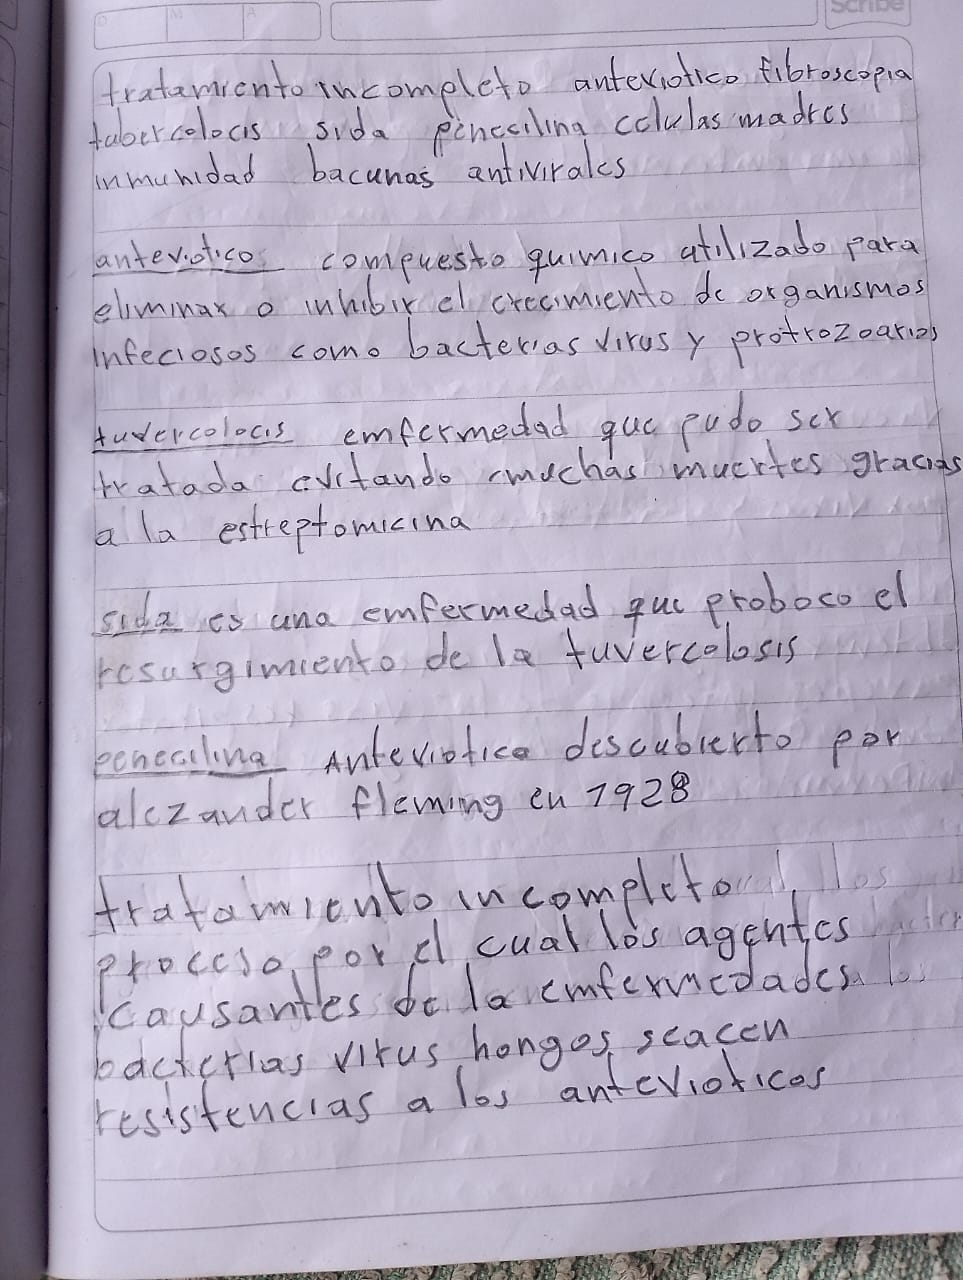 Scribe
D M A
tratamiento incompleto anteviotico fibroscopia
tabercolocis sida peneciling celulas madres
inmunidad bacunas antivirales
anteviotico compuesto quimico atilizado para
eliminar o inhibir el crecimiento de organismos
infeciosos como bacterias virus y protrozoarios
tuvercolocis emfermedad que pudo ser
tratada evitando muchas muertes gracias
a la estreptomicina
sida es una emfermedad que proboco el
resurgimiento de la tuvercolosis
penecilina Anteviotico descubierto por
alezander fleming en 1928
tratamiento incompleto
proceso por el cual los agentes
causantes de la emfermedades
bacterias virus hongos seacen
resistencias a los antevioticos